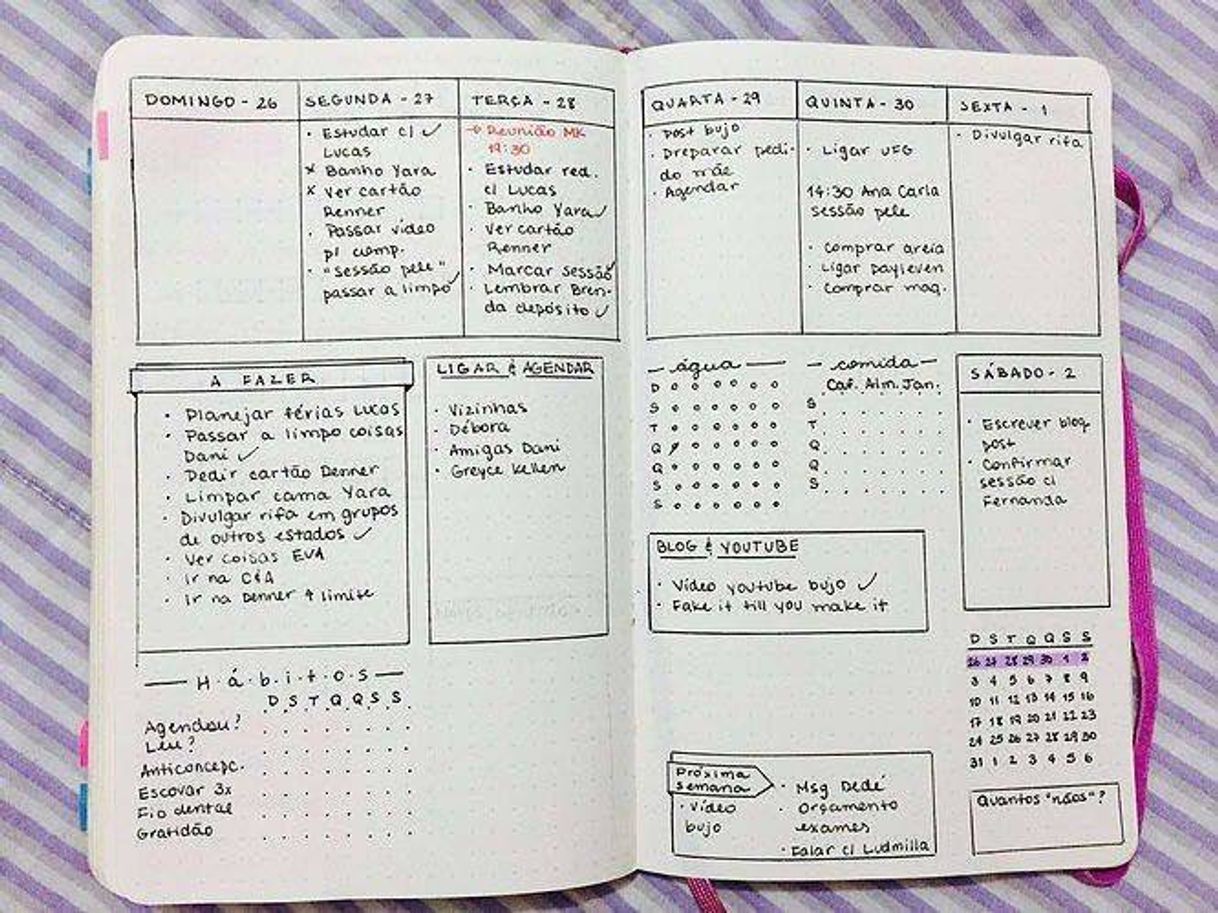 DOMINGO - 26
SEGUNDA - 27
· Estudar c/ ✓
Lucas
x Banho Yara
x Ver cartão
Renner
· Passar vídeo
p/ comp.
· "sessão pele"
passar a limpo ✓
TERÇA - 28
→ Reunião MK
19:30
· Estudar red.
c/ Lucas
· Banho Yara ✓
· Ver cartão
Renner
· Marcar sessão ✓
· Lembrar Bren-
da depósito ✓
QUARTA - 29
· Post bujo
· Preparar pedi-
do mãe
· Agendar
QUINTA - 30
· Ligar UFG
14:30 Ana Carla
sessão pele
· Comprar areia
· Ligar payleven
· Comprar maq.
SEXTA - 1
· Divulgar rifa
A FAZER
· Planejar férias Lucas
· Passar a limpo coisas
Dani ✓
· Pedir cartão Renner
· Limpar cama Yara
· Divulgar rifa em grupos
de outros estados ✓
· Ver coisas EVA
· Ir na C&A
· Ir na Renner ↑ limite
LIGAR & AGENDAR
· Vizinhas
· Débora
· Amigas Dani
· Greyce Kellen
água
D
S
T
Q
Q
S
S
comida
Caf. Alm. Jan.
S
T
Q
Q
S
SÁBADO - 2
· Escrever blog
post
· Confirmar
sessão c/
Fernanda
BLOG & YOUTUBE
· Vídeo youtube bujo ✓
· Fake it till you make it
H·á·b·i·t·o·s
D S T Q Q S S
Agendou?
Leu?
Anticoncepc.
Escovar 3x
Fio dental
Gratidão
D S T Q Q S S
26 27 28 29 30 1 2
3 4 5 6 7 8 9
10 11 12 13 14 15 16
17 18 19 20 21 22 23
24 25 26 27 28 29 30
31 1 2 3 4 5 6
Próxima
semana
· Vídeo
bujo
· Msg Dedé
· Orçamento
exames
· Falar c/ Ludmilla
Quantos "nãos"?